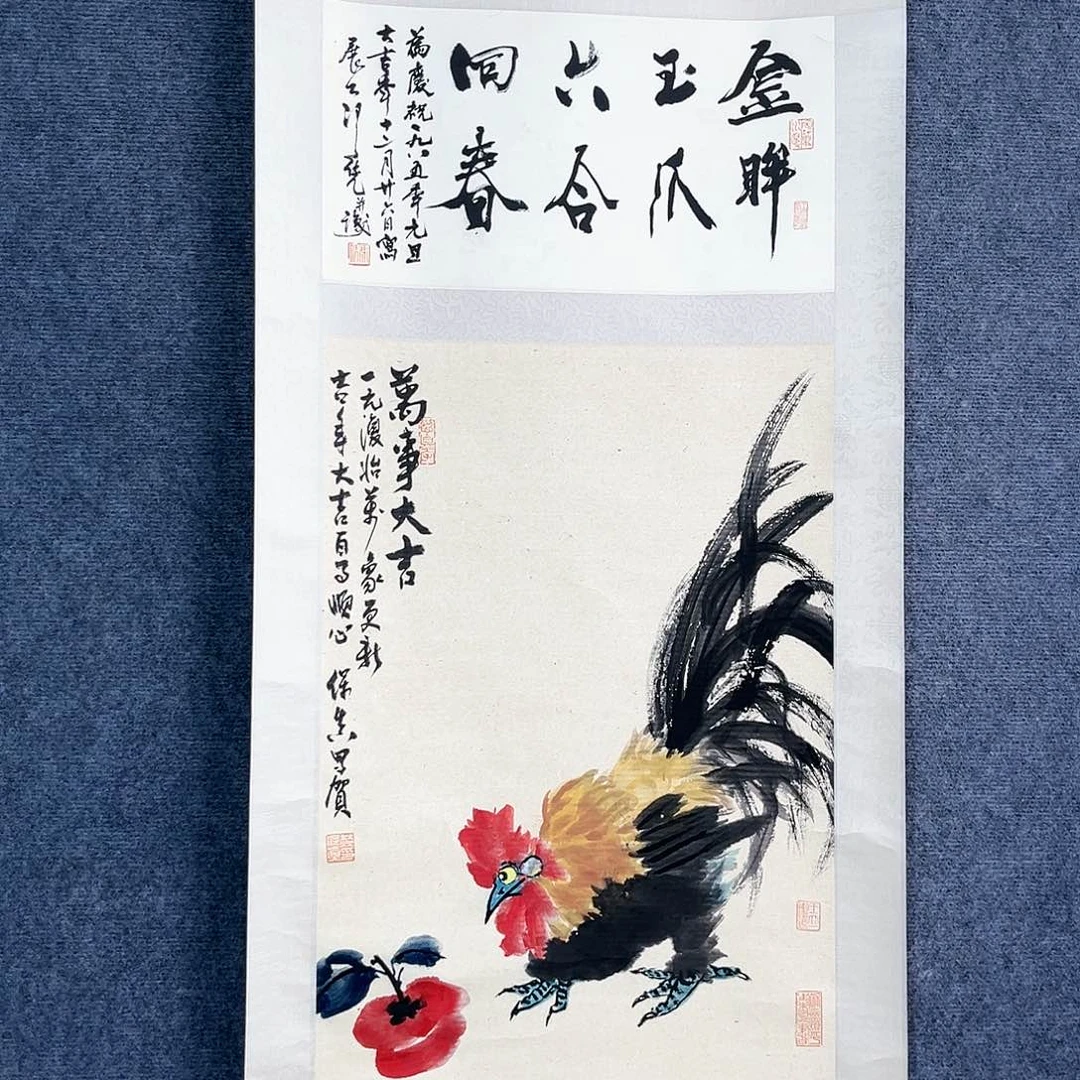 金眸
玉爪
六合
同春
為慶祝一九八五年元旦
大吉年十二月廿六日寫
展云 並識
萬事大吉
一元復始萬象更新
吉年大吉百事順心 保 賀